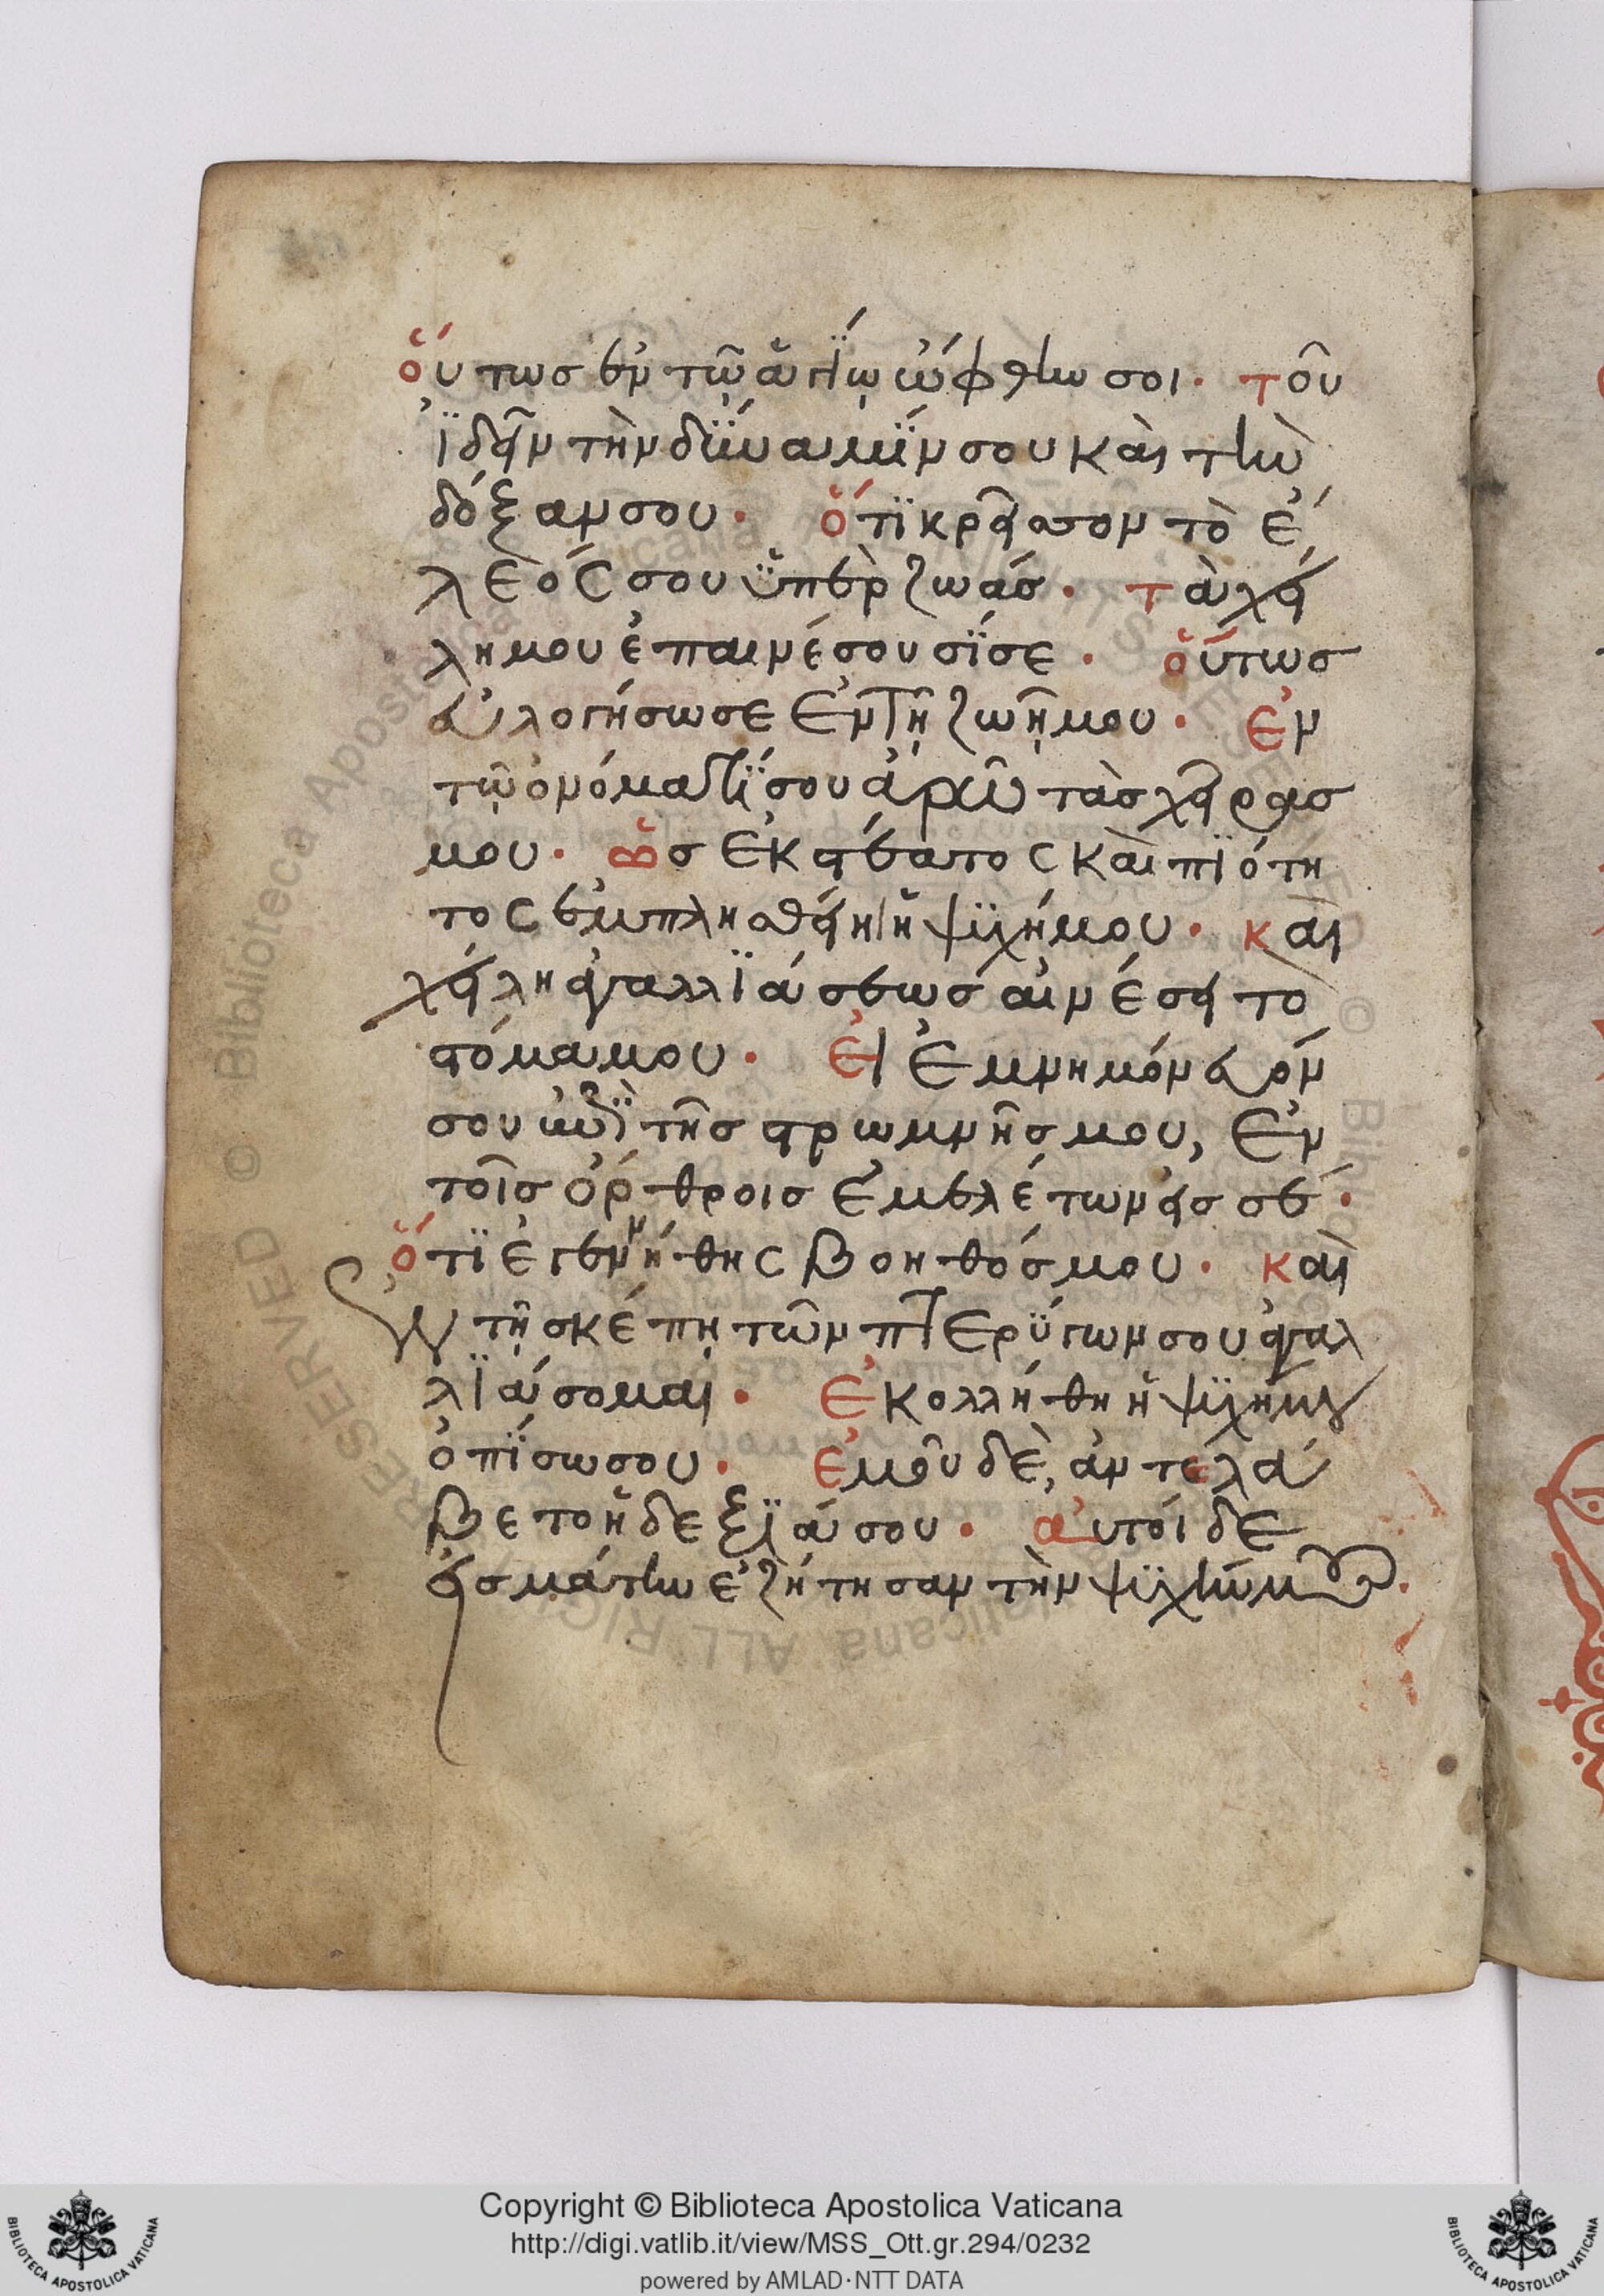 ὅυτωσ ἐν τῶ ἁγΐω ὤφθην σοι· τοῦ
ϊδεῖν τὴν δΰναμΐν σου καὶ τὴν
δόξαν σου· ὅτϊ κρεῖσσον τὸ ἔ
λεὸς σου ὕπὲρ ζωάσ· τὰ χεί
λη μου ἐπαινέσουσΐ σε· ὅύτωσ
εὐλογήσω σε ἐν τῆ ζωῆ μου· ἐν
τῶ ὀνόματΐ σου ἀρῶ τὰσ χεῖρασ
μου· ὡσ ἐκ στέατος καὶ πϊότη
τος ἐμπλησθείη ἡ ψϋχή μου· καὶ
χείλη ἀγαλλϊάσεωσ αἰνέσει τὸ
στόμα μου· εἰ ἐμνημόνευόν
σου ἐπὶ τῆσ στρωμνῆσ μου, ἐν
τοῖσ ὄρθροισ ἐμελέτων εἰσ σέ·
ὅτϊ ἐγεννήθης βοηθόσ μου· καὶ
ἐν τῆ σκέπη τῶν πτερΰγων σου ἀγαλ
λϊάσομαι· ἐκολλήθη ἡ ψϋχή μου
ὀπΐσω σου· ἐμοῦ δὲ, ἀντελά
βετο ἡ δεξϊά σου· ἀυτόι δὲ
εἰσ μάτην ἐζήτησαν τὴν ψϋχήν μου.
Copyright © Biblioteca Apostolica Vaticana
http://digi.vatlib.it/view/MSS_Ott.gr.294/0232
powered by AMLAD·NTT DATA
BIBLIOTECA APOSTOLICA VATICANA
BIBLIOTECA APOSTOLICA VATICANA